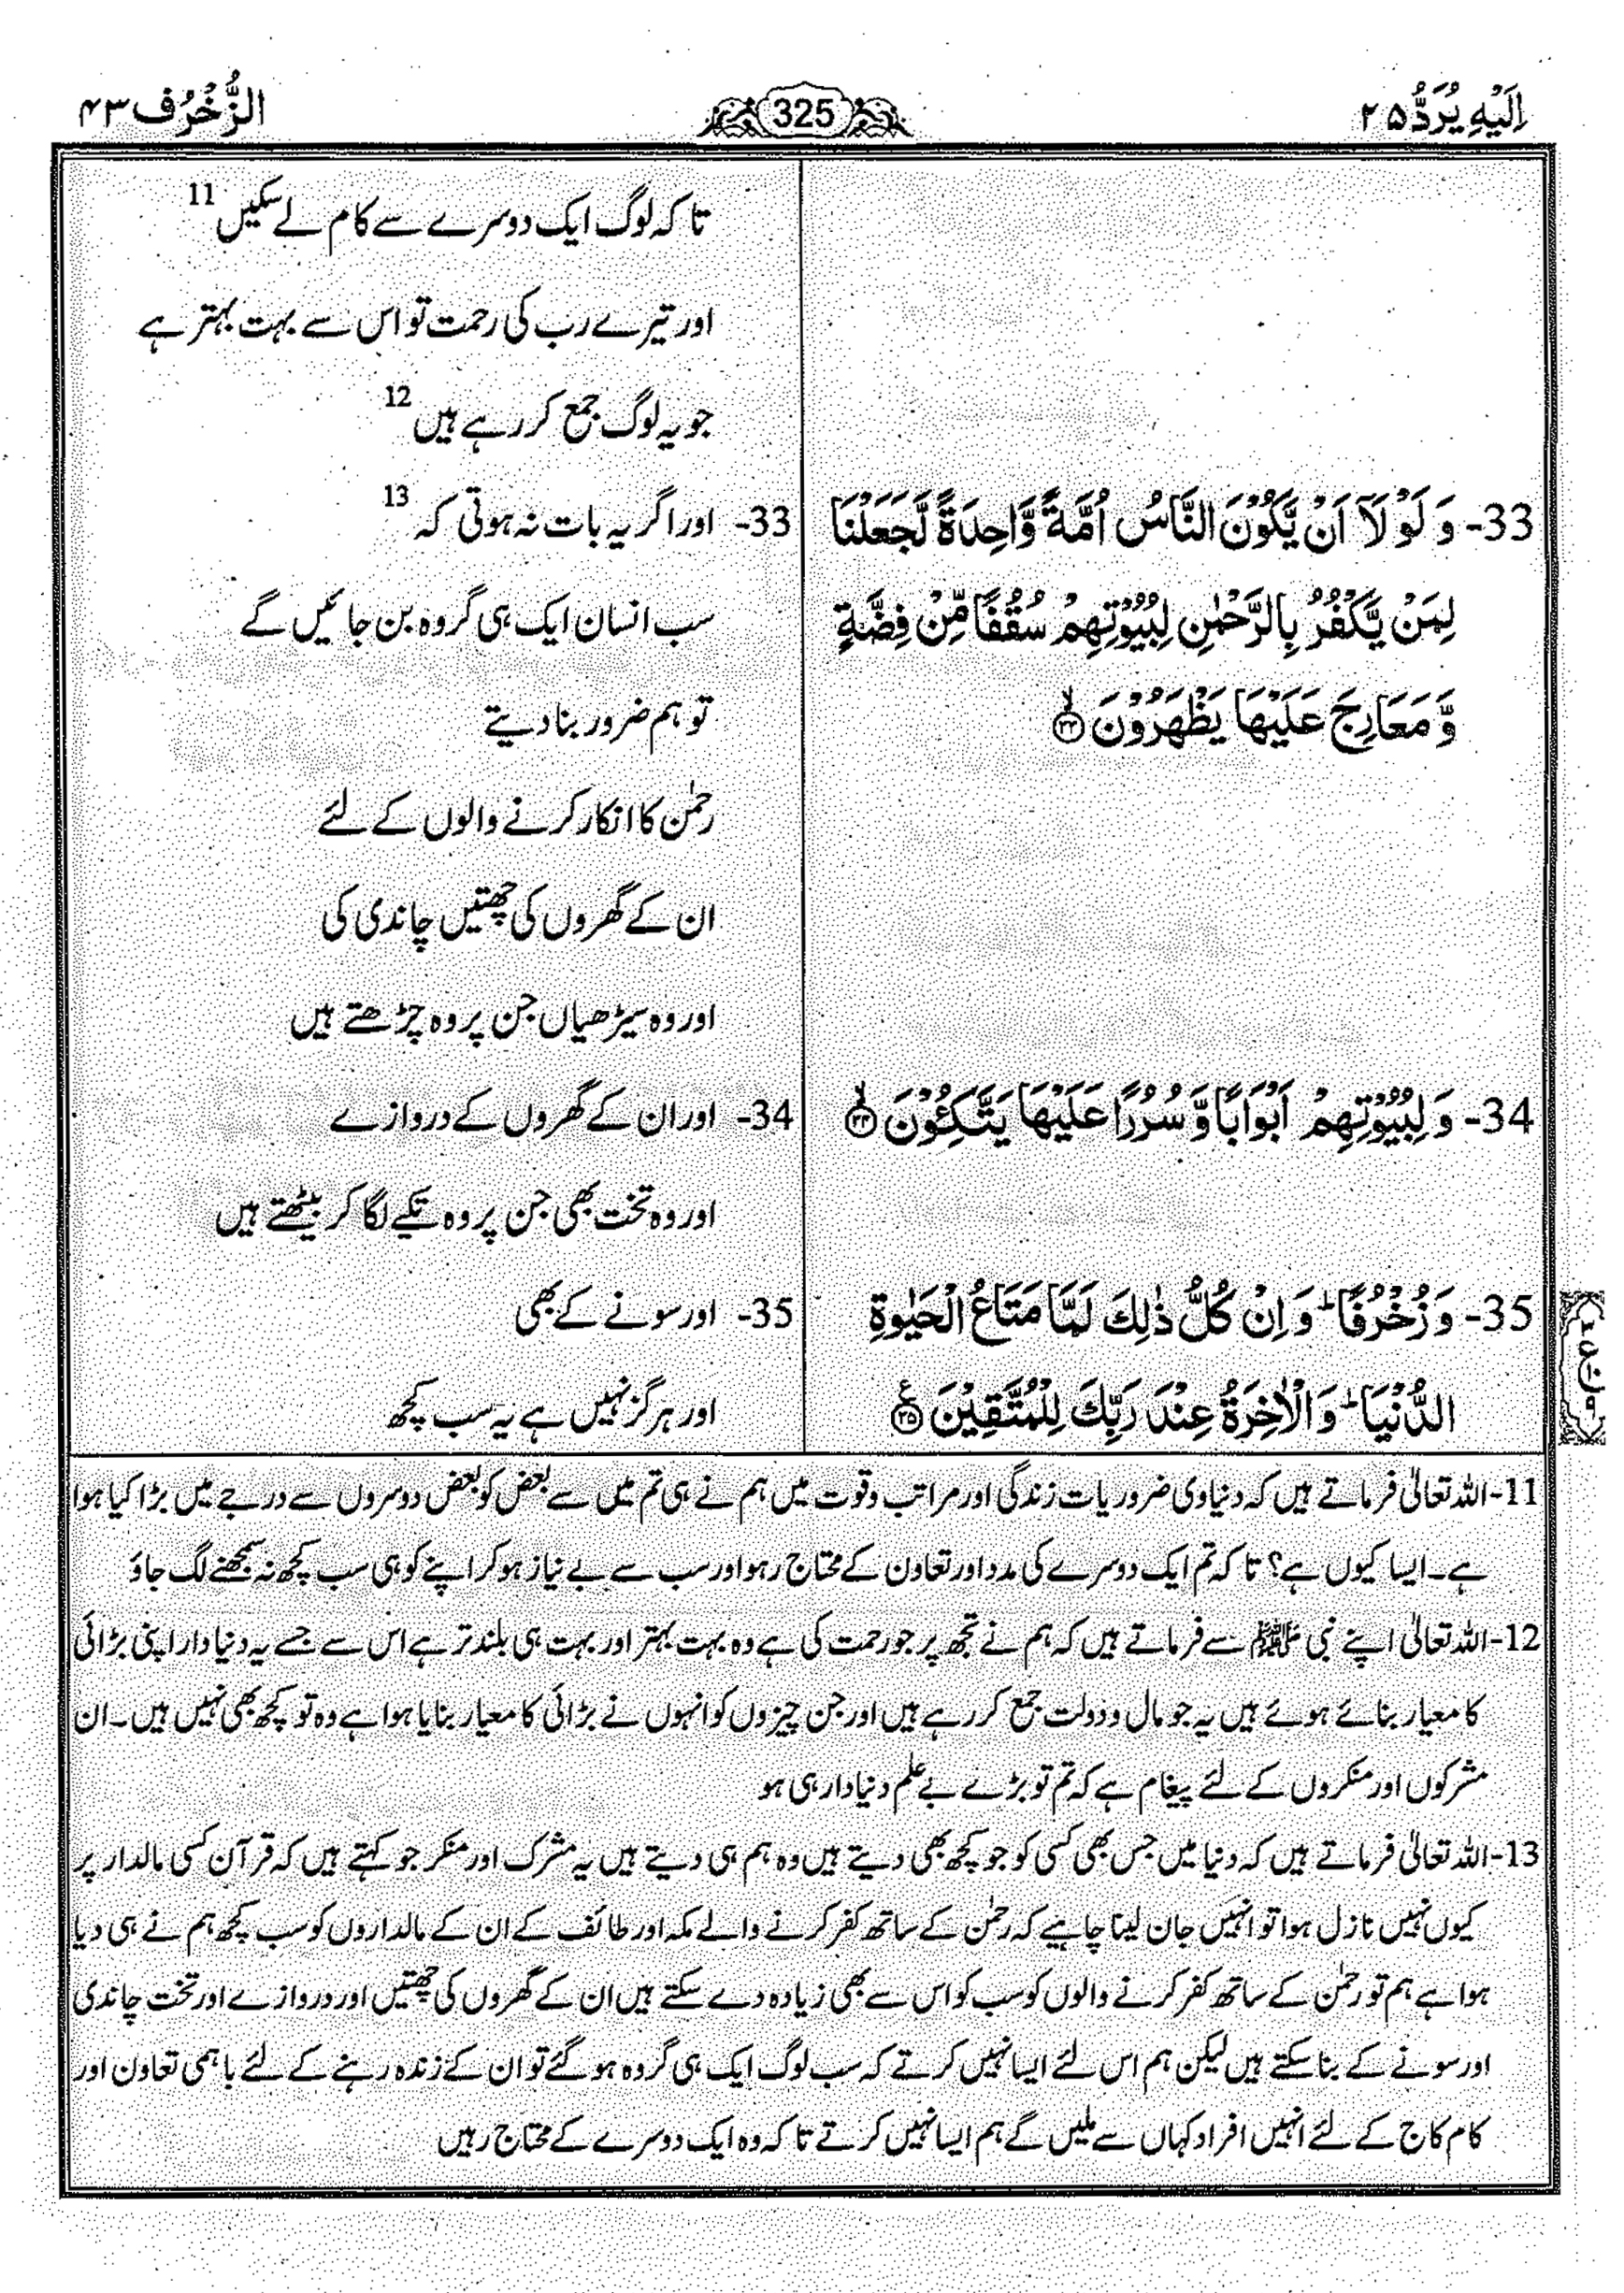 اِلَيْهِ يُرَدُّ ۲۵
325
الزُّخْرُف ۴۳
تا کہ لوگ ایک دوسرے سے کام لے سکیں 11
اور تیرے رب کی رحمت تو اس سے بہت بہتر ہے
جو یہ لوگ جمع کر رہے ہیں 12
33- وَ لَوْ لَاۤ اَنْ يَّكُوْنَ النَّاسُ اُمَّةً وَّاحِدَةً لَّجَعَلْنَا
لِمَنْ يَّكْفُرُ بِالرَّحْمٰنِ لِبُيُوْتِهِمْ سُقُفًا مِّنْ فِضَّةٍ
وَّ مَعَارِجَ عَلَيْهَا يَظْهَرُوْنَ ۙ۳۳
33- اور اگر یہ بات نہ ہوتی کہ 13
سب انسان ایک ہی گروہ بن جائیں گے
تو ہم ضرور بنا دیتے
رحمٰن کا انکار کرنے والوں کے لئے
ان کے گھروں کی چھتیں چاندی کی
اور وہ سیڑھیاں جن پر وہ چڑھتے ہیں
34- وَ لِبُيُوْتِهِمْ اَبْوَابًا وَّ سُرُرًا عَلَيْهَا يَتَّكِـُٔوْنَ ۙ۳۴
34- اور ان کے گھروں کے دروازے
اور وہ تخت بھی جن پر وہ تکیے لگا کر بیٹھتے ہیں
35- وَ زُخْرُفًا ؕ وَ اِنْ كُلُّ ذٰلِكَ لَمَّا مَتَاعُ الْحَيٰوةِ
الدُّنْيَا ؕ وَ الْاٰخِرَةُ عِنْدَ رَبِّكَ لِلْمُتَّقِيْنَ ۳۵ ع
35- اور سونے کے بھی
اور ہرگز نہیں ہے یہ سب کچھ
11-اللہ تعالیٰ فرماتے ہیں کہ دنیاوی ضروریات زندگی اور مراتب وقوت میں ہم نے ہی تم میں سے بعض کو بعض دوسروں سے درجے میں بڑا کیا ہوا
ہے۔ ایسا کیوں ہے؟ تا کہ تم ایک دوسرے کی مدد اور تعاون کے محتاج رہو اور سب سے بے نیاز ہو کر اپنے کو ہی سب کچھ نہ سمجھنے لگ جاؤ
12-اللہ تعالیٰ اپنے نبی ﷺ سے فرماتے ہیں کہ ہم نے تجھ پر جو رحمت کی ہے وہ بہت بہتر اور بہت ہی بلند تر ہے اس سے جسے یہ دنیا دار اپنی بڑائی
کا معیار بنائے ہوئے ہیں یہ جو مال و دولت جمع کر رہے ہیں اور جن چیزوں کو انہوں نے بڑائی کا معیار بنایا ہوا ہے وہ تو کچھ بھی نہیں ہیں۔ ان
مشرکوں اور منکروں کے لئے پیغام ہے کہ تم تو بڑے بے علم دنیا دار ہی ہو
13-اللہ تعالیٰ فرماتے ہیں کہ دنیا میں جس بھی کسی کو جو کچھ بھی دیتے ہیں وہ ہم ہی دیتے ہیں یہ مشرک اور منکر جو کہتے ہیں کہ قرآن کسی مالدار پر
کیوں نہیں نازل ہوا تو انہیں جان لینا چاہیے کہ رحمٰن کے ساتھ کفر کرنے والے مکہ اور طائف کے ان کے مالداروں کو سب کچھ ہم نے ہی دیا
ہوا ہے ہم تو رحمٰن کے ساتھ کفر کرنے والوں کو سب کو اس سے بھی زیادہ دے سکتے ہیں ان کے گھروں کی چھتیں اور دروازے اور تخت چاندی
اور سونے کے بنا سکتے ہیں لیکن ہم اس لئے ایسا نہیں کرتے کہ سب لوگ ایک ہی گروہ ہو گئے تو ان کے زندہ رہنے کے لئے باہمی تعاون اور
کام کاج کے لئے انہیں افراد کہاں سے ملیں گے ہم ایسا نہیں کرتے تا کہ وہ ایک دوسرے کے محتاج رہیں